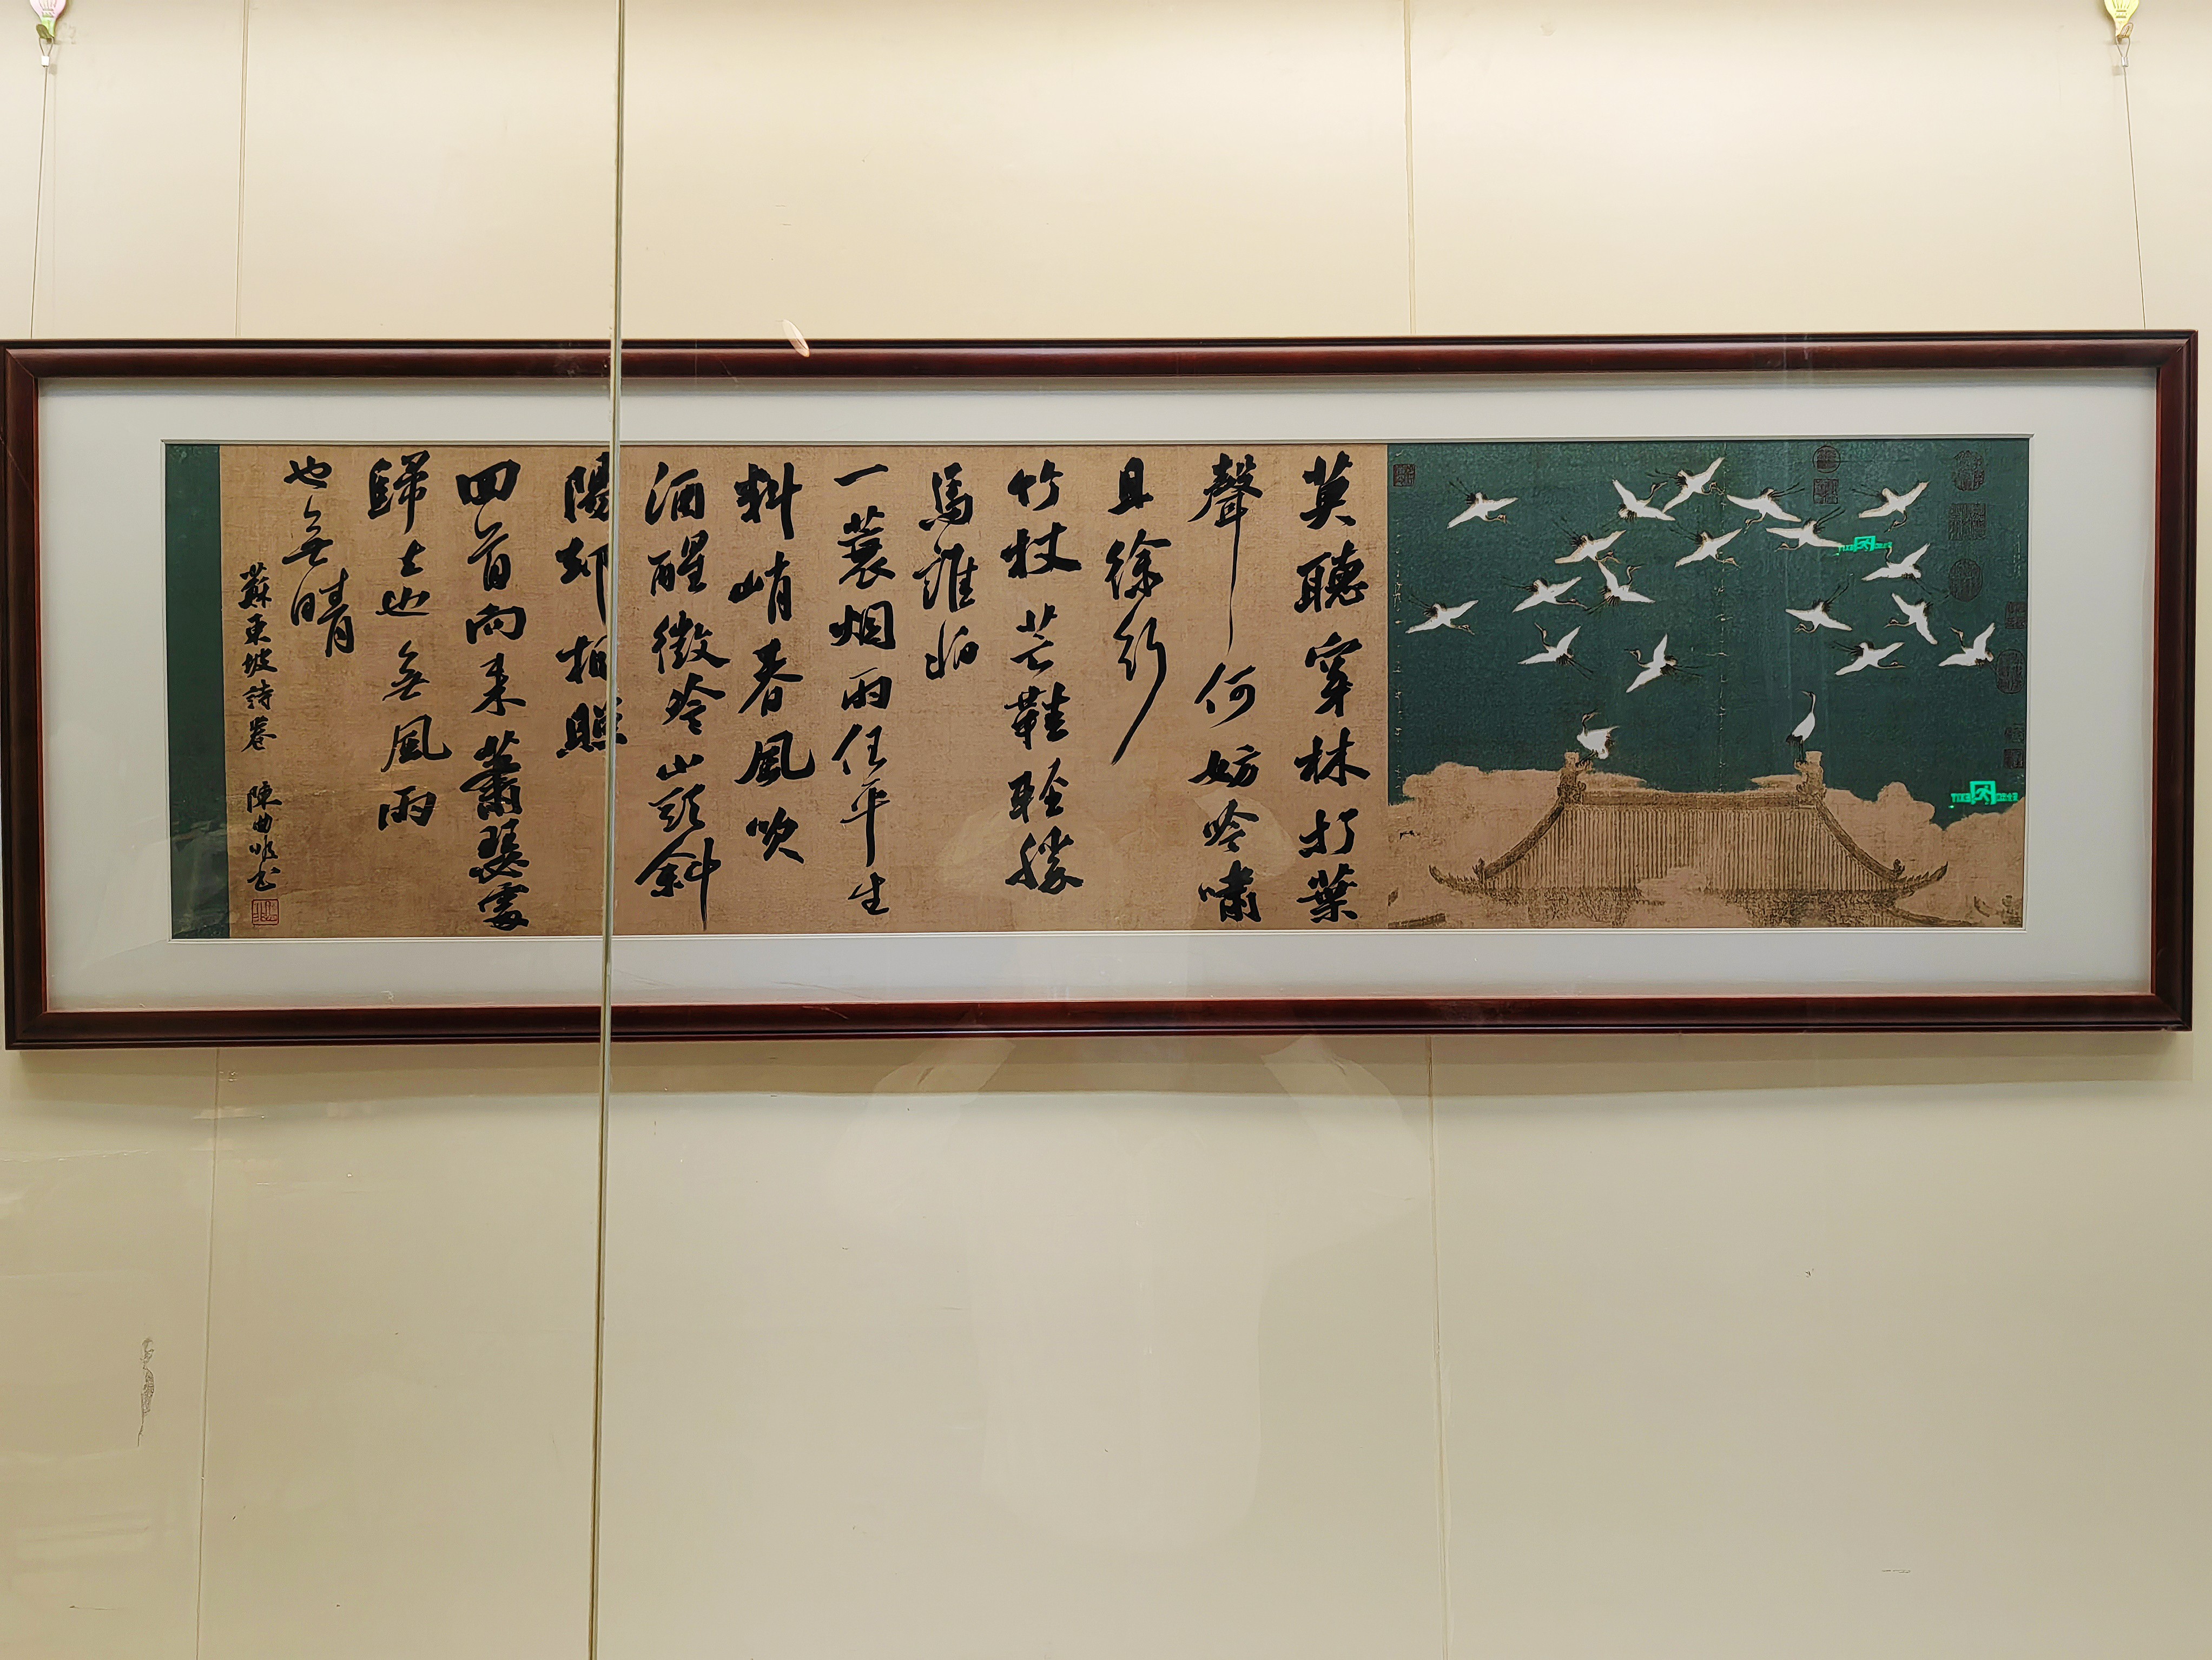 莫聽穿林打葉
聲何妨吟嘯
且徐行
竹杖芒鞋輕勝
馬誰怕
一蓑烟雨任平生
料峭春風吹
酒醒微冷山頭斜
陽却相照
回首向来蕭瑟處
歸去也無風雨
也無晴
蘇東坡詩卷 陳曲